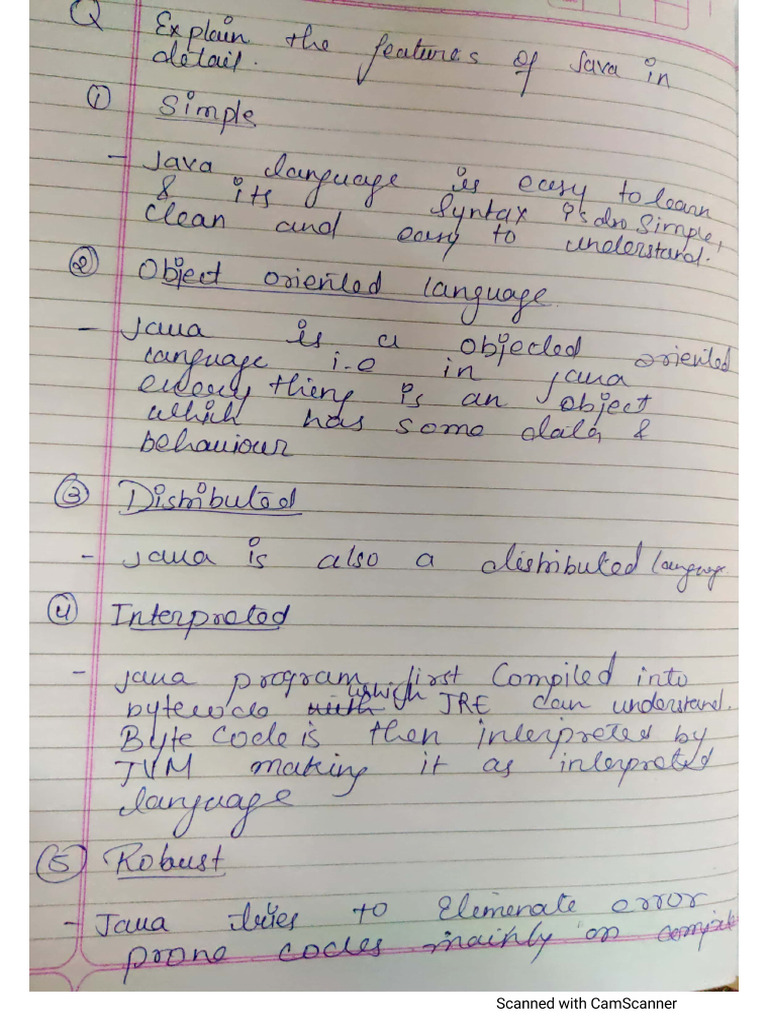 Q Explain the features of Java in
detail.
① Simple
- Java language is easy to learn
& its syntax is also simple,
clean and easy to understand.
② Object oriented language
- Java is a objected oriented
language i.e in java
every thing is an object
which has some data &
behaviour
③ Distributed
- Java is also a distributed language
④ Interpreted
- Java program first Compiled into
bytecode which JRE can understand.
Byte Code is then interpreted by
JVM making it as interpreted
language
⑤ Robust
- Java tries to Elimenate error
prone codes mainly on
Scanned with CamScanner